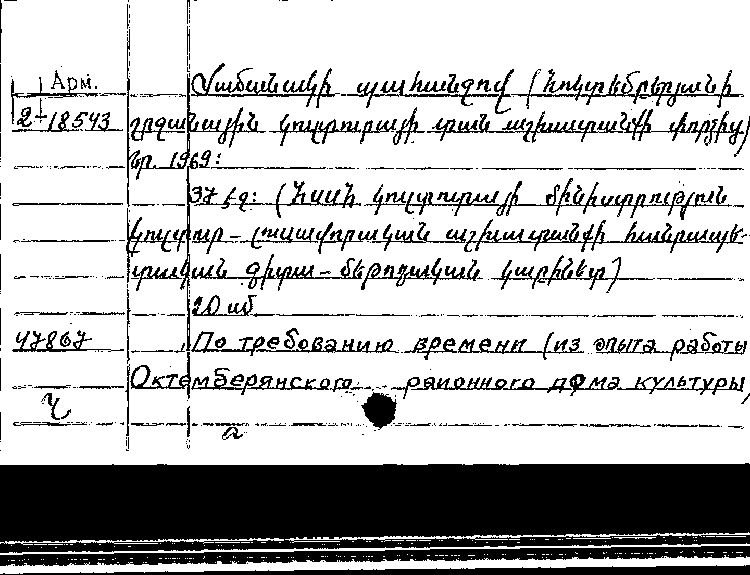 Арм. Ժամանակի պահանջով (Հոկտեմբերյանի
2-18543 շրջանային կուլտուրայի տան աշխատանքի փորձից)
Եր. 1969:
37 էջ: (ՀՍՍՀ կուլտուրայի մինիստրություն
կուլտ-լուսավորական աշխատանքի հանրապե-
տական գիտա-մեթոդական կաբինետ)
20 ամ.
47867 По требованию времени (из опыта работы
Октемберянского районного дома культуры)
а